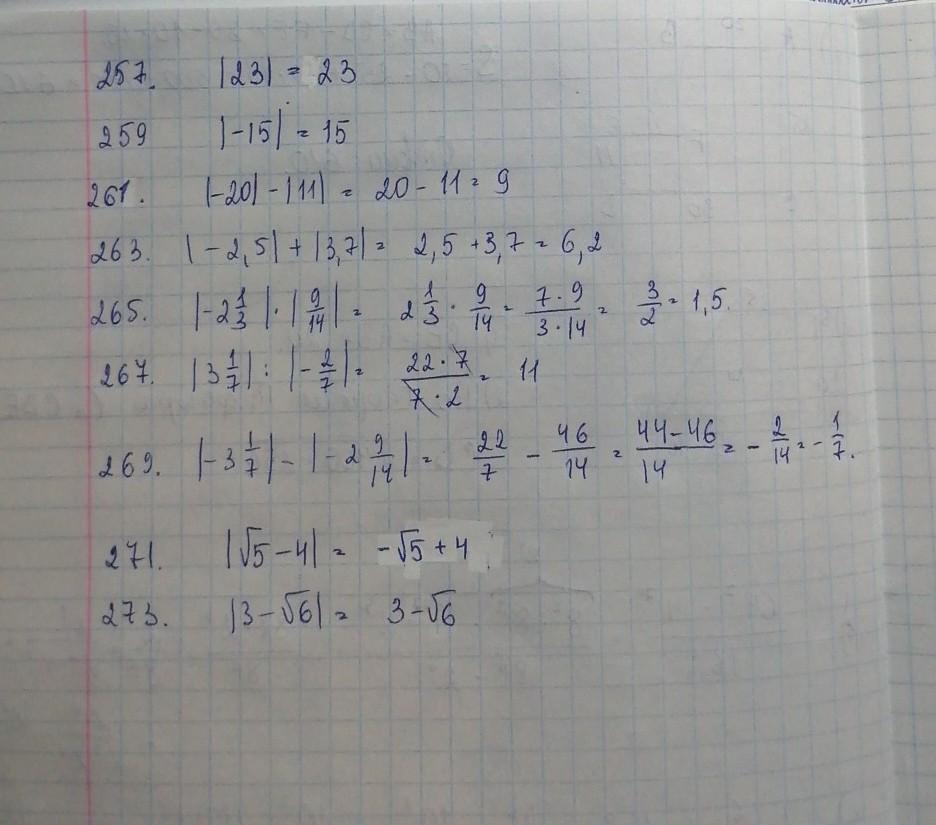 257. |23| = 23
259 |-15| = 15
261. |-20| - |11| = 20 - 11 = 9
263. |-2,5| + |3,7| = 2,5 + 3,7 = 6,2
265. |-2 1/3| · |9/14| = 2 1/3 · 9/14 = (7·9)/(3·14) = 3/2 = 1,5.
267. |3 1/7| : |-2/7| = (22·7)/(7·2) = 11
269. |-3 1/7| - |-2 9/14| = 22/7 - 46/14 = (44-46)/14 = -2/14 = -1/7.
271. |√5 - 4| = -√5 + 4
273. |3 - √6| = 3 - √6